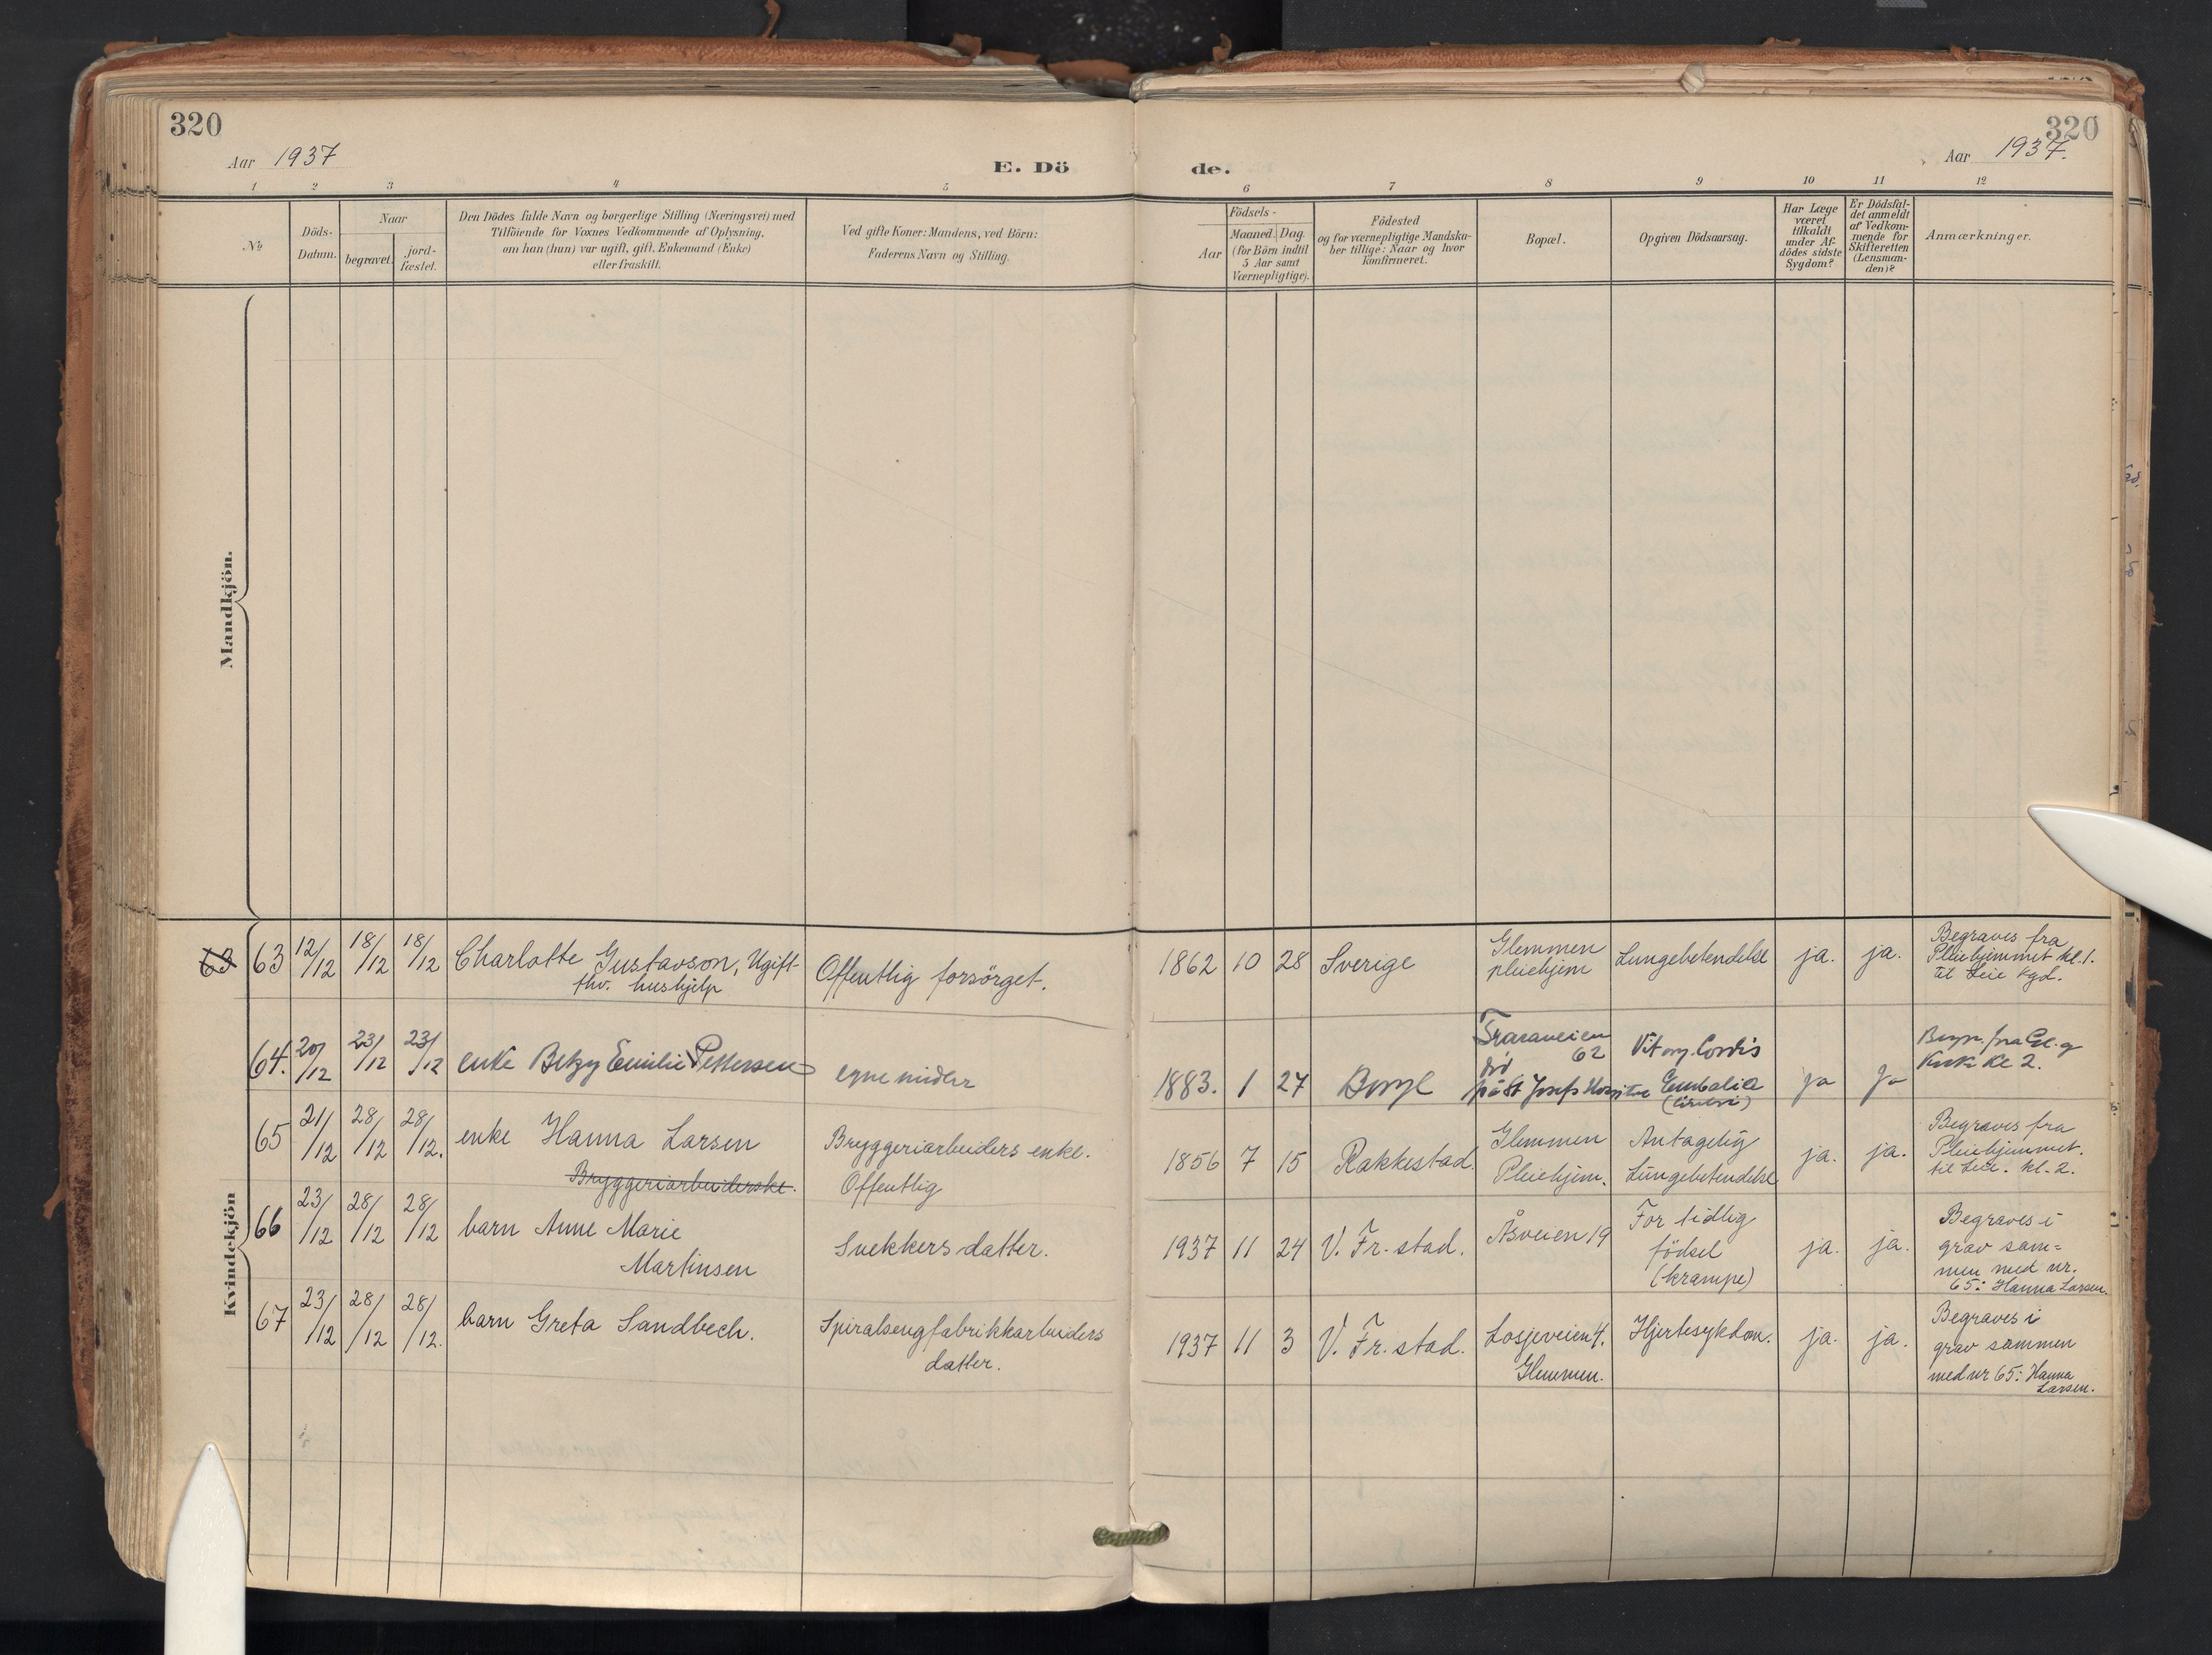 320
Aar 1937
E. Dö
1 2 3 4 5
№
Döds-
Datum.
Naar
begravet.
jord-
fæstet.
Den Dödes fulde Navn og borgerlige Stilling (Næringsvei) med
Tilföiende for Voxnes Vedkommende af Oplysning,
om han (hun) var ugift, gift, Enkemand (Enke)
eller fraskilt.
Ved gifte Koner: Mandens, ved Börn:
Faderens Navn og Stilling.
Mandkjön.
Kvindekjön
63 63 12/12 18/12 18/12 Charlotte Gustavson, Ugift
thv. hushjelp
Offentlig forsörget.
64. 20/12 23/12 23/12 enke Betzy Emilie Pettersen egne midler
65 21/12 28/12 28/12. enke Hanna Larsen
Bryggeriarbeiderske.
Bryggeriarbeiders enke.
Offentlig
66 23/12 28/12 28/12 barn Anne Marie
Martinsen
Snekkers datter.
67 23/12 28/12 28/12. barn Greta Sandbech.
Spiralsengfabrikkarbeiders
datter.
320
Aar 1937.
de.
6 7 8 9 10 11 12
Födsels-
Aar
Maaned. Dag.
(for Börn indtil
5 Aar samt
Værnepligtige).
Födested
og for værnepligtige Mandska-
ber tillige: Naar og hvor
konfirmeret.
Bopæl.
Opgiven Dödsaarsag.
Har Læge
været
tilkaldt
under Af-
dödes sidste
Sygdom?
Er Dödsfal-
det anmeldt
af Vedkom-
mende for
Skifteretten
(Lensman-
den)?
Anmærkninger.
1862 10 28 Sverige
Glemmen
pleiehjem
Lungebetendelse ja. ja.
Begraves fra
Pleiehjemmet kl. 1.
til Leie kgd.
1883. 1 27 Borge
62
död
på St Josefs Hospital
Vit. org. Cordis
Embolia
ja ja
Kirke kl 2.
1856 7 15 Rakkestad.
Glemmen
Pleiehjem.
Antagelig
Lungebetendelse
ja. ja.
Begraves fra
Pleiehjemmet.
til Leie. kl. 2.
1937 11 24 V. Fr. stad. Åsveien 19
For tidlig
födsel
(krampe)
ja. ja.
Begraves i
grav sam=
men med nr.
65: Hanna Larsen.
1937 11 3 V. Fr. stad.
Losjeveien 4.
Glemmen.
Hjertesykdom. ja. ja.
Begraves i
grav sammen
med nr 65: Hanna
Larsen.